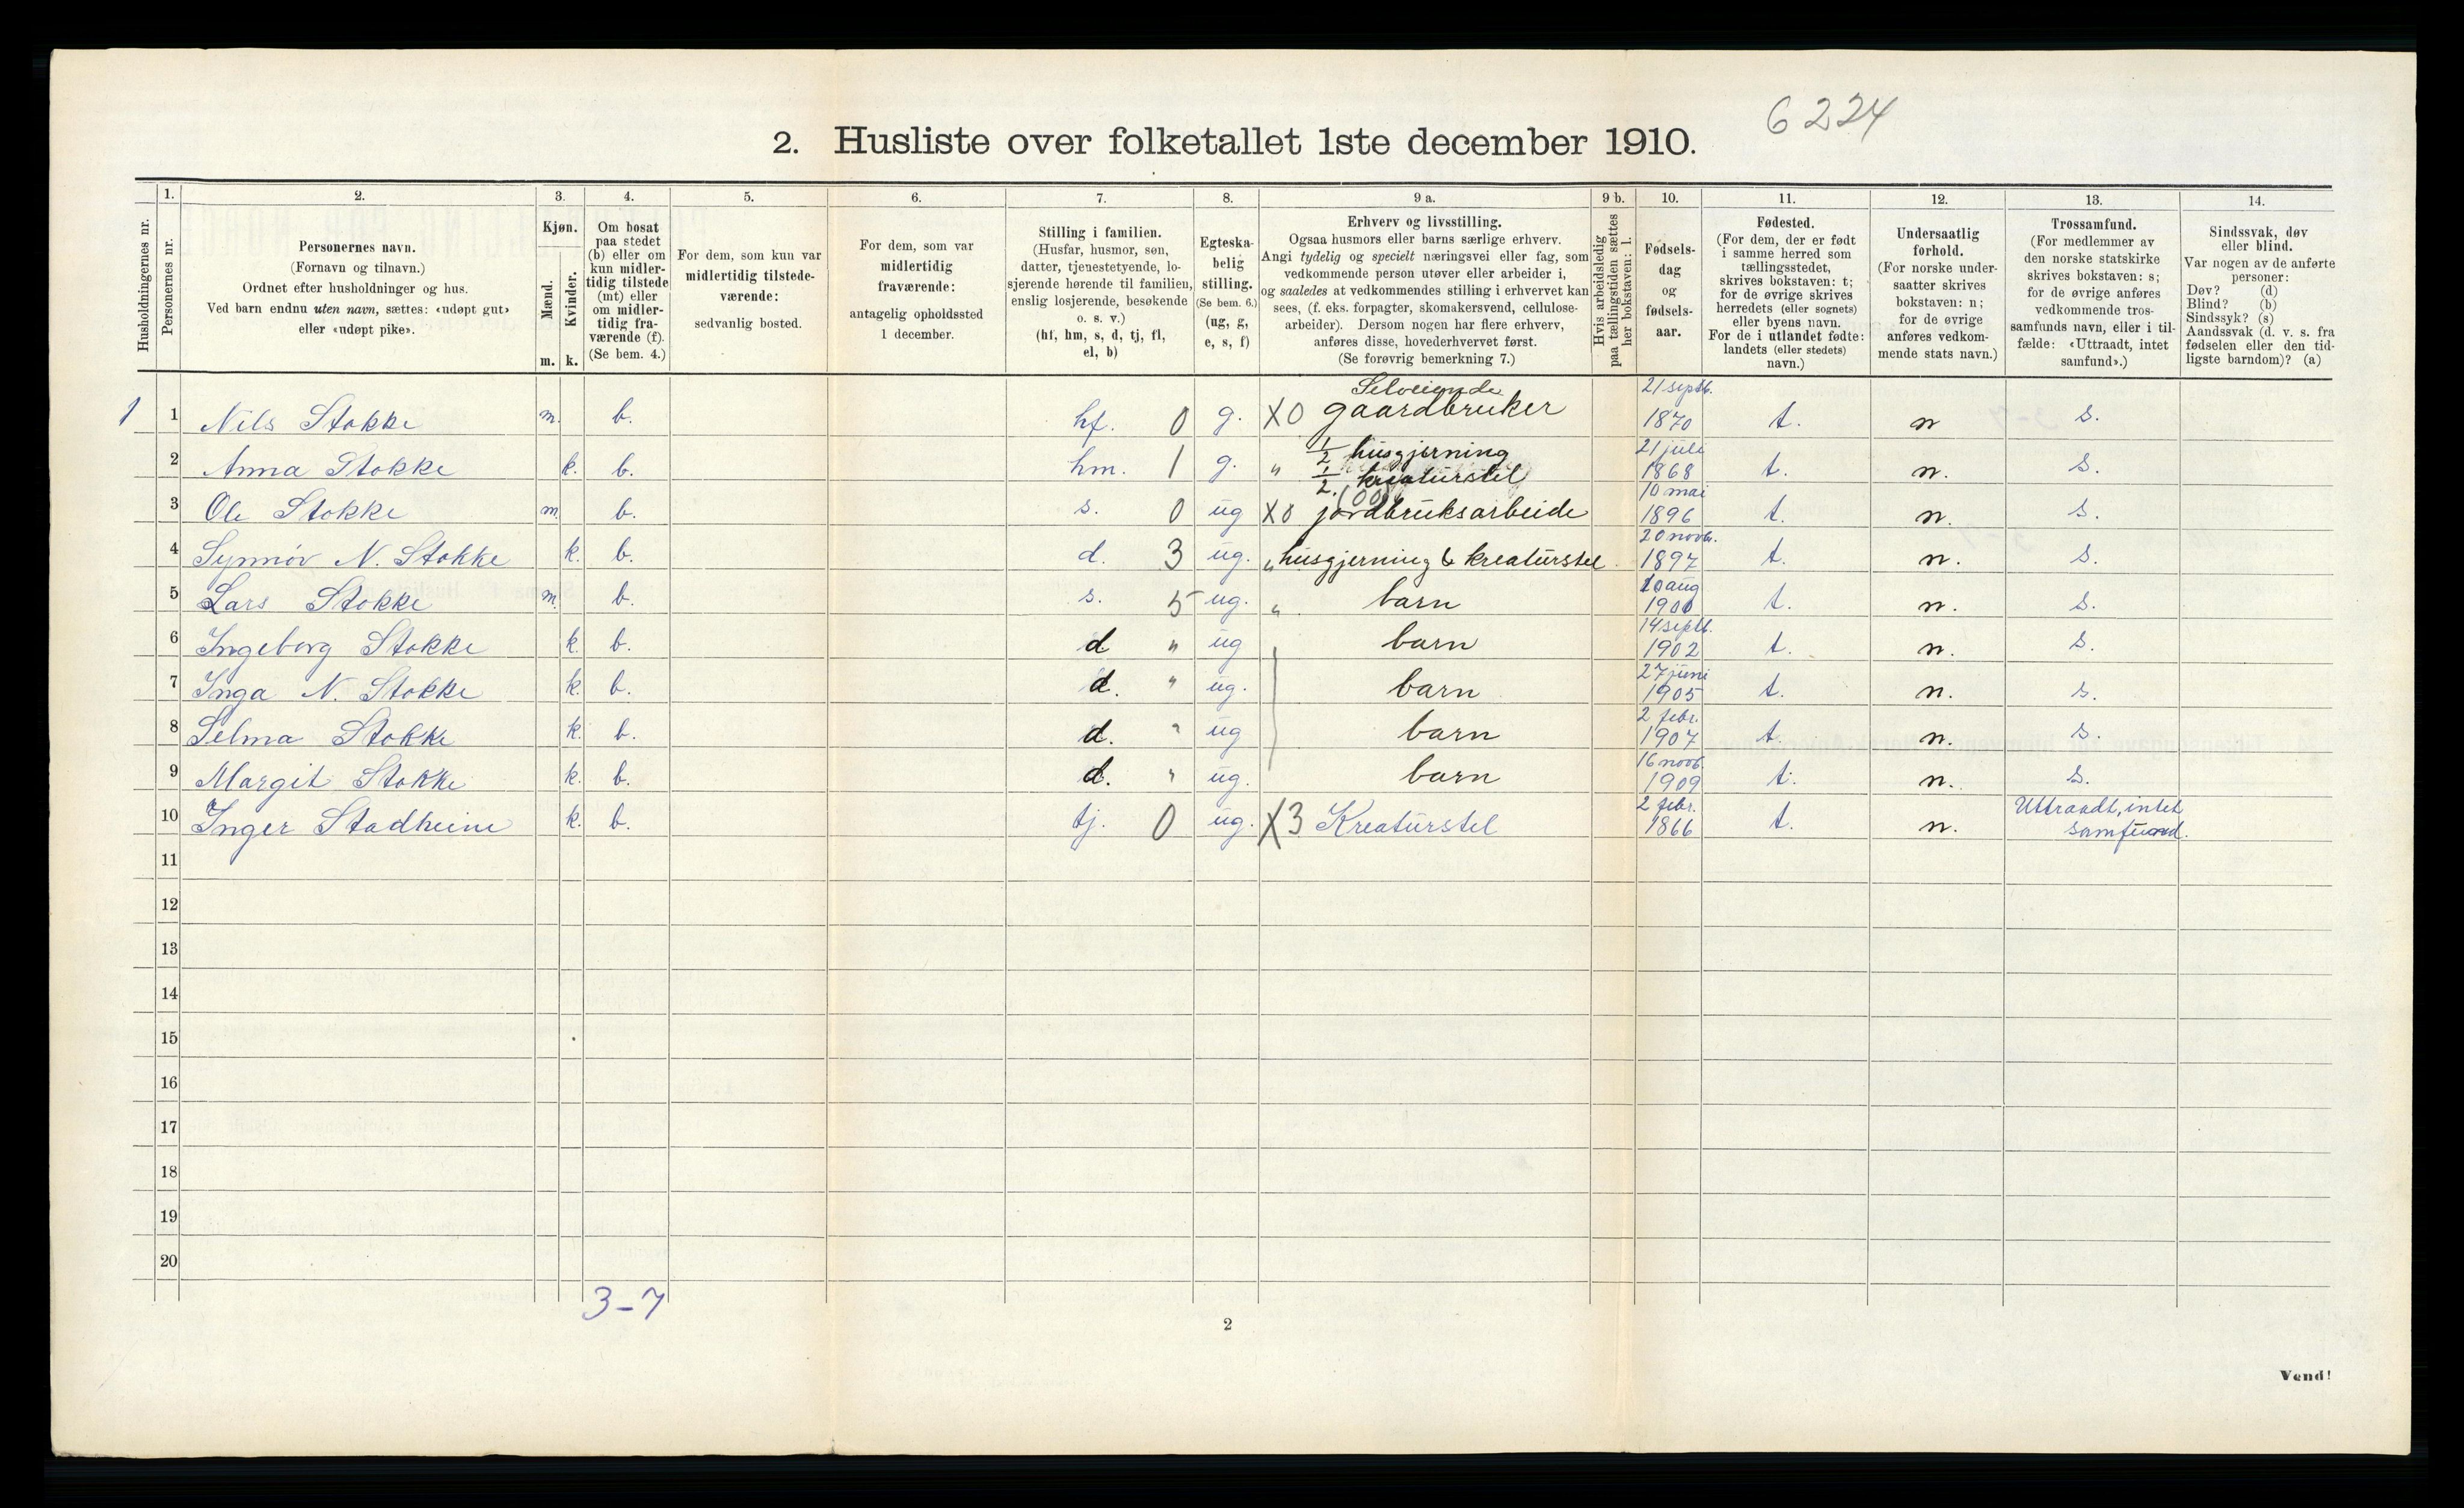 6224
2. Husliste over folketallet 1ste december 1910.
Husholdningernes nr.
1.
Personernes nr.
2.
Personernes navn.
(Fornavn og tilnavn.)
Ordnet efter husholdninger og hus.
Ved barn endnu uten navn, sættes: «udøpt gut»
eller «udøpt pike».
3.
Kjøn.
Mænd.
Kvinder.
m. k.
4.
Om bosat
paa stedet
(b) eller om
kun midler-
tidig tilstede
(mt) eller
om midler-
tidig fra-
værende (f).
(Se bem. 4.)
5.
For dem, som kun var
midlertidig tilstede-
værende:
sedvanlig bosted.
6.
For dem, som var
midlertidig
fraværende:
antagelig opholdssted
1 december.
7.
Stilling i familien.
(Husfar, husmor, søn,
datter, tjenestetyende, lo-
sjerende hørende til familien,
enslig losjerende, besøkende
o. s. v.)
(hf, hm, s, d, tj, fl,
el, b)
8.
Egteska-
belig
stilling.
(Se bem. 6.)
(ug, g,
e, s, f)
9 a.
Erhverv og livsstilling.
Ogsaa husmors eller barns særlige erhverv.
Angi tydelig og specielt næringsvei eller fag, som
vedkommende person utøver eller arbeider i,
og saaledes at vedkommendes stilling i erhvervet kan
sees, (f. eks. forpagter, skomakersvend, cellulose-
arbeider). Dersom nogen har flere erhverv,
anføres disse, hovederhvervet først.
(Se forøvrig bemerkning 7.)
9 b.
Hvis arbeidsledig
paa tællingstiden sættes
her bokstaven: l.
10.
Fødsels-
dag
og
fødsels-
aar.
11.
Fødested.
(For dem, der er født
i samme herred som
tællingsstedet,
skrives bokstaven: t;
for de øvrige skrives
herredets (eller sognets)
eller byens navn.
For de i utlandet fødte:
landets (eller stedets)
navn.)
12.
Undersaatlig
forhold.
(For norske under-
saatter skrives
bokstaven: n;
for de øvrige
anføres vedkom-
mende stats navn.)
13.
Trossamfund.
(For medlemmer av
den norske statskirke
skrives bokstaven: s;
for de øvrige anføres
vedkommende tros-
samfunds navn, eller i til-
fælde: «Uttraadt, intet
samfund».)
14.
Sindssvak, døv
eller blind.
Var nogen av de anførte
personer:
Døv? (d)
Blind? (b)
Sindssyk? (s)
Aandssvak (d. v. s. fra
fødselen eller den tid-
ligste barndom)? (a)
1 1 Nils Stokke m. b. hf. 0 g. X0 Selveiende gaardbruker 21 septb. 1870 t. n s.
2 Anna Stokke k. b. hm. 1 g. " 1/2 husgjerning 1/2 kreaturstel 21 juli 1868 t. n. s.
3 Ole Stokke m. b. s. 0 ug X0 jordbruksarbeide 10 mai 1896 t. n. s.
4 Synnöv N. Stokke k. b. d. 3 ug. " husgjerning & kreaturstel 20 novbr. 1897 t. n. s.
5 Lars Stokke m. b. s. 5 ug. " barn 10 aug 1900 t. n. s.
6 Ingeborg Stokke k. b. d " ug barn 14 septb. 1902 t. n. s.
7 Inga N. Stokke k. b. d. " ug. barn 27 juni 1905 t. n. s.
8 Selma Stokke k. b. d. " ug barn 2 febr. 1907 t. n. s.
9 Margit Stokke k. b. d. " ug. barn 16 novb. 1909 t. n. s.
10 Inger Stadheim k. b. tj. 0 ug. X3 Kreaturstel 2 febr. 1866 t. n. Uttraadt, intet samfund.
11
12
13
14
15
16
17
18
19
20
3-7
2
Vend!